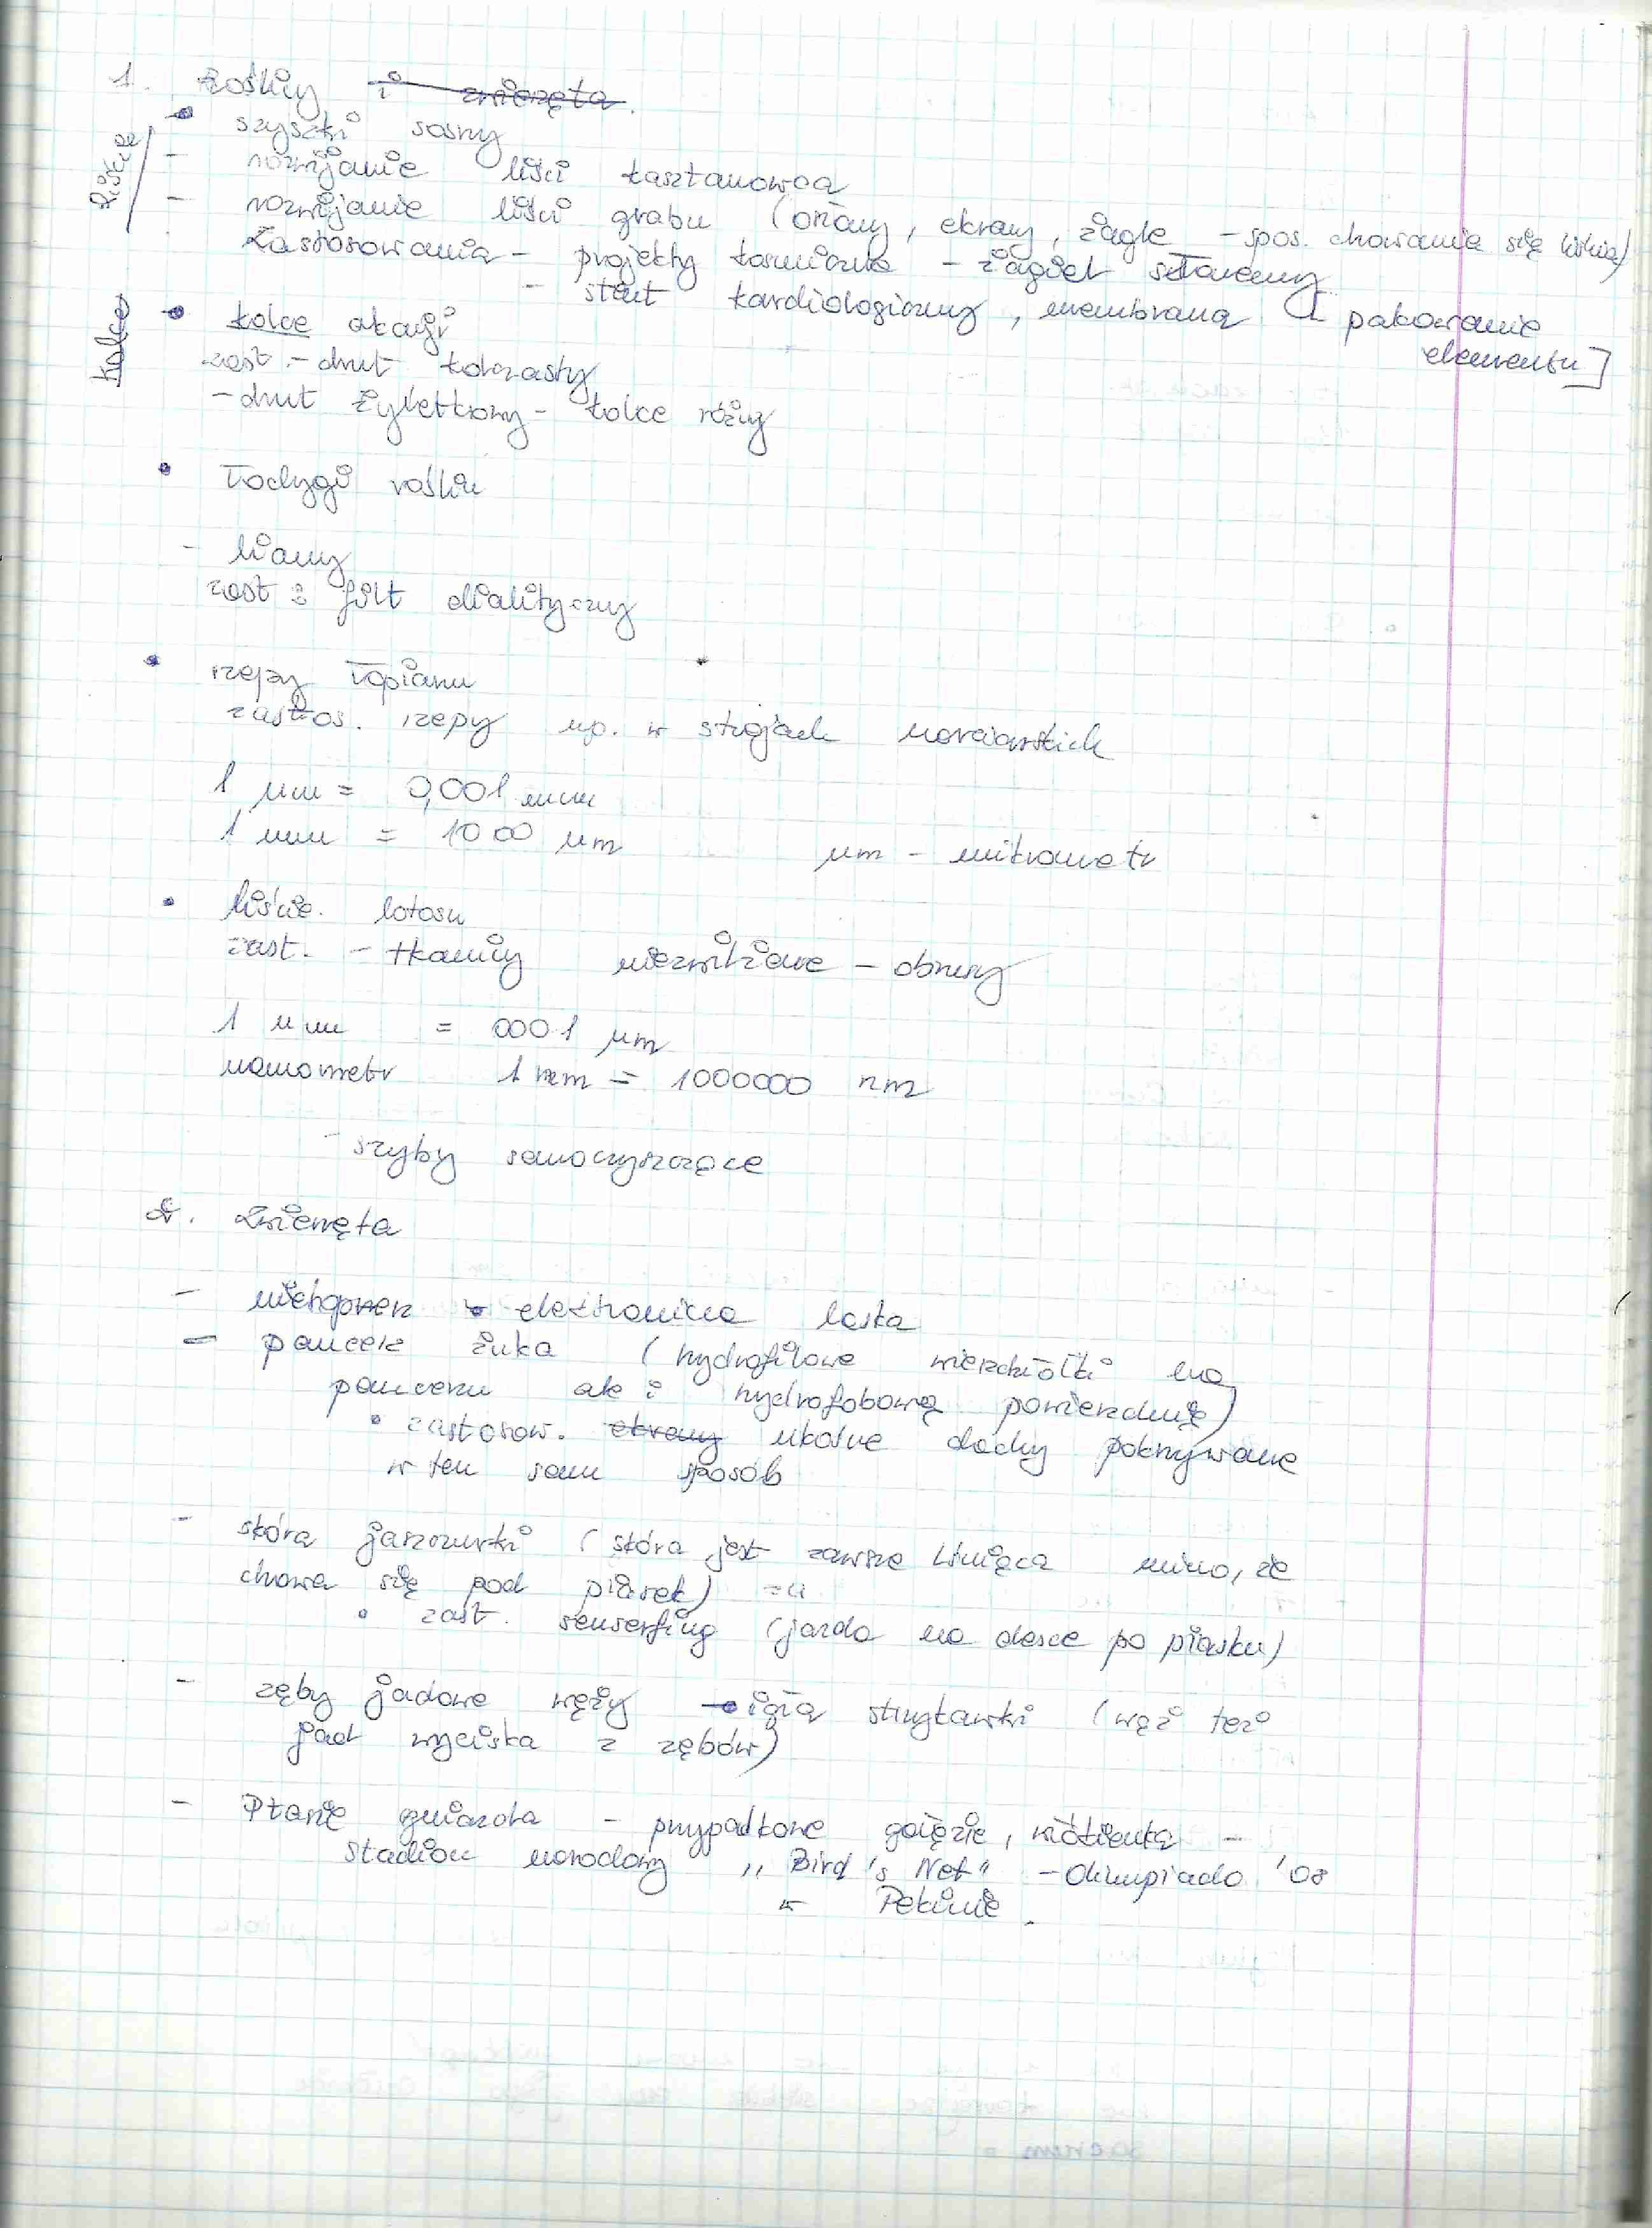 1. Rośliny i zwierzęta.
• szyszki sosny
Liście
- rozwijanie liści kasztanowca
- rozwijanie liści grabu (ekrany, żagle - spos. chowania się liścia)
Zastosowania - projekty kosmiczne - żagiel słoneczny
- stent kardiologiczny, membrana [pakowanie
elementu]
Kolce
• kolce akacji
zast. - drut kolczasty
- drut żyletkowy - kolce róży
• Łodygi roślin
- liany
zast : filt dialityczny
• rzepy łopianu
zastos. rzepy np. w strojach narciarskich
1 µm = 0,001 mm
1 mm = 1000 µm µm - mikrometr
• liście. lotosu
zast. - tkaniny niezwilżane - obrusy
1 nm = 0001 µm
nanometr 1 mm = 1000000 nm
- szyby samoczyszczące
2. Zwierzęta
- nietoperz - elektroniczna laska
- pancerz żuka (hydrofilowe wierzchołki na
pancerzu ale i hydrofobową powierzchnię)
• zastosow. ekrany ukośne dachy pokrywane
w ten sam sposób
- skóra jaszczurki (skóra jest zawsze lśniąca mimo, że
chowa się pod piasek)
• zast. senserfing (jazda na desce po piasku)
- zęby jadowe węży - igła strzykawki (wąż też
jad wyciska z zębów)
- Ptasie gniazda - przypadkowe gałęzie, włókienka -
Stadion narodowy „Bird's Net" - Olimpiada '08
w Pekinie.